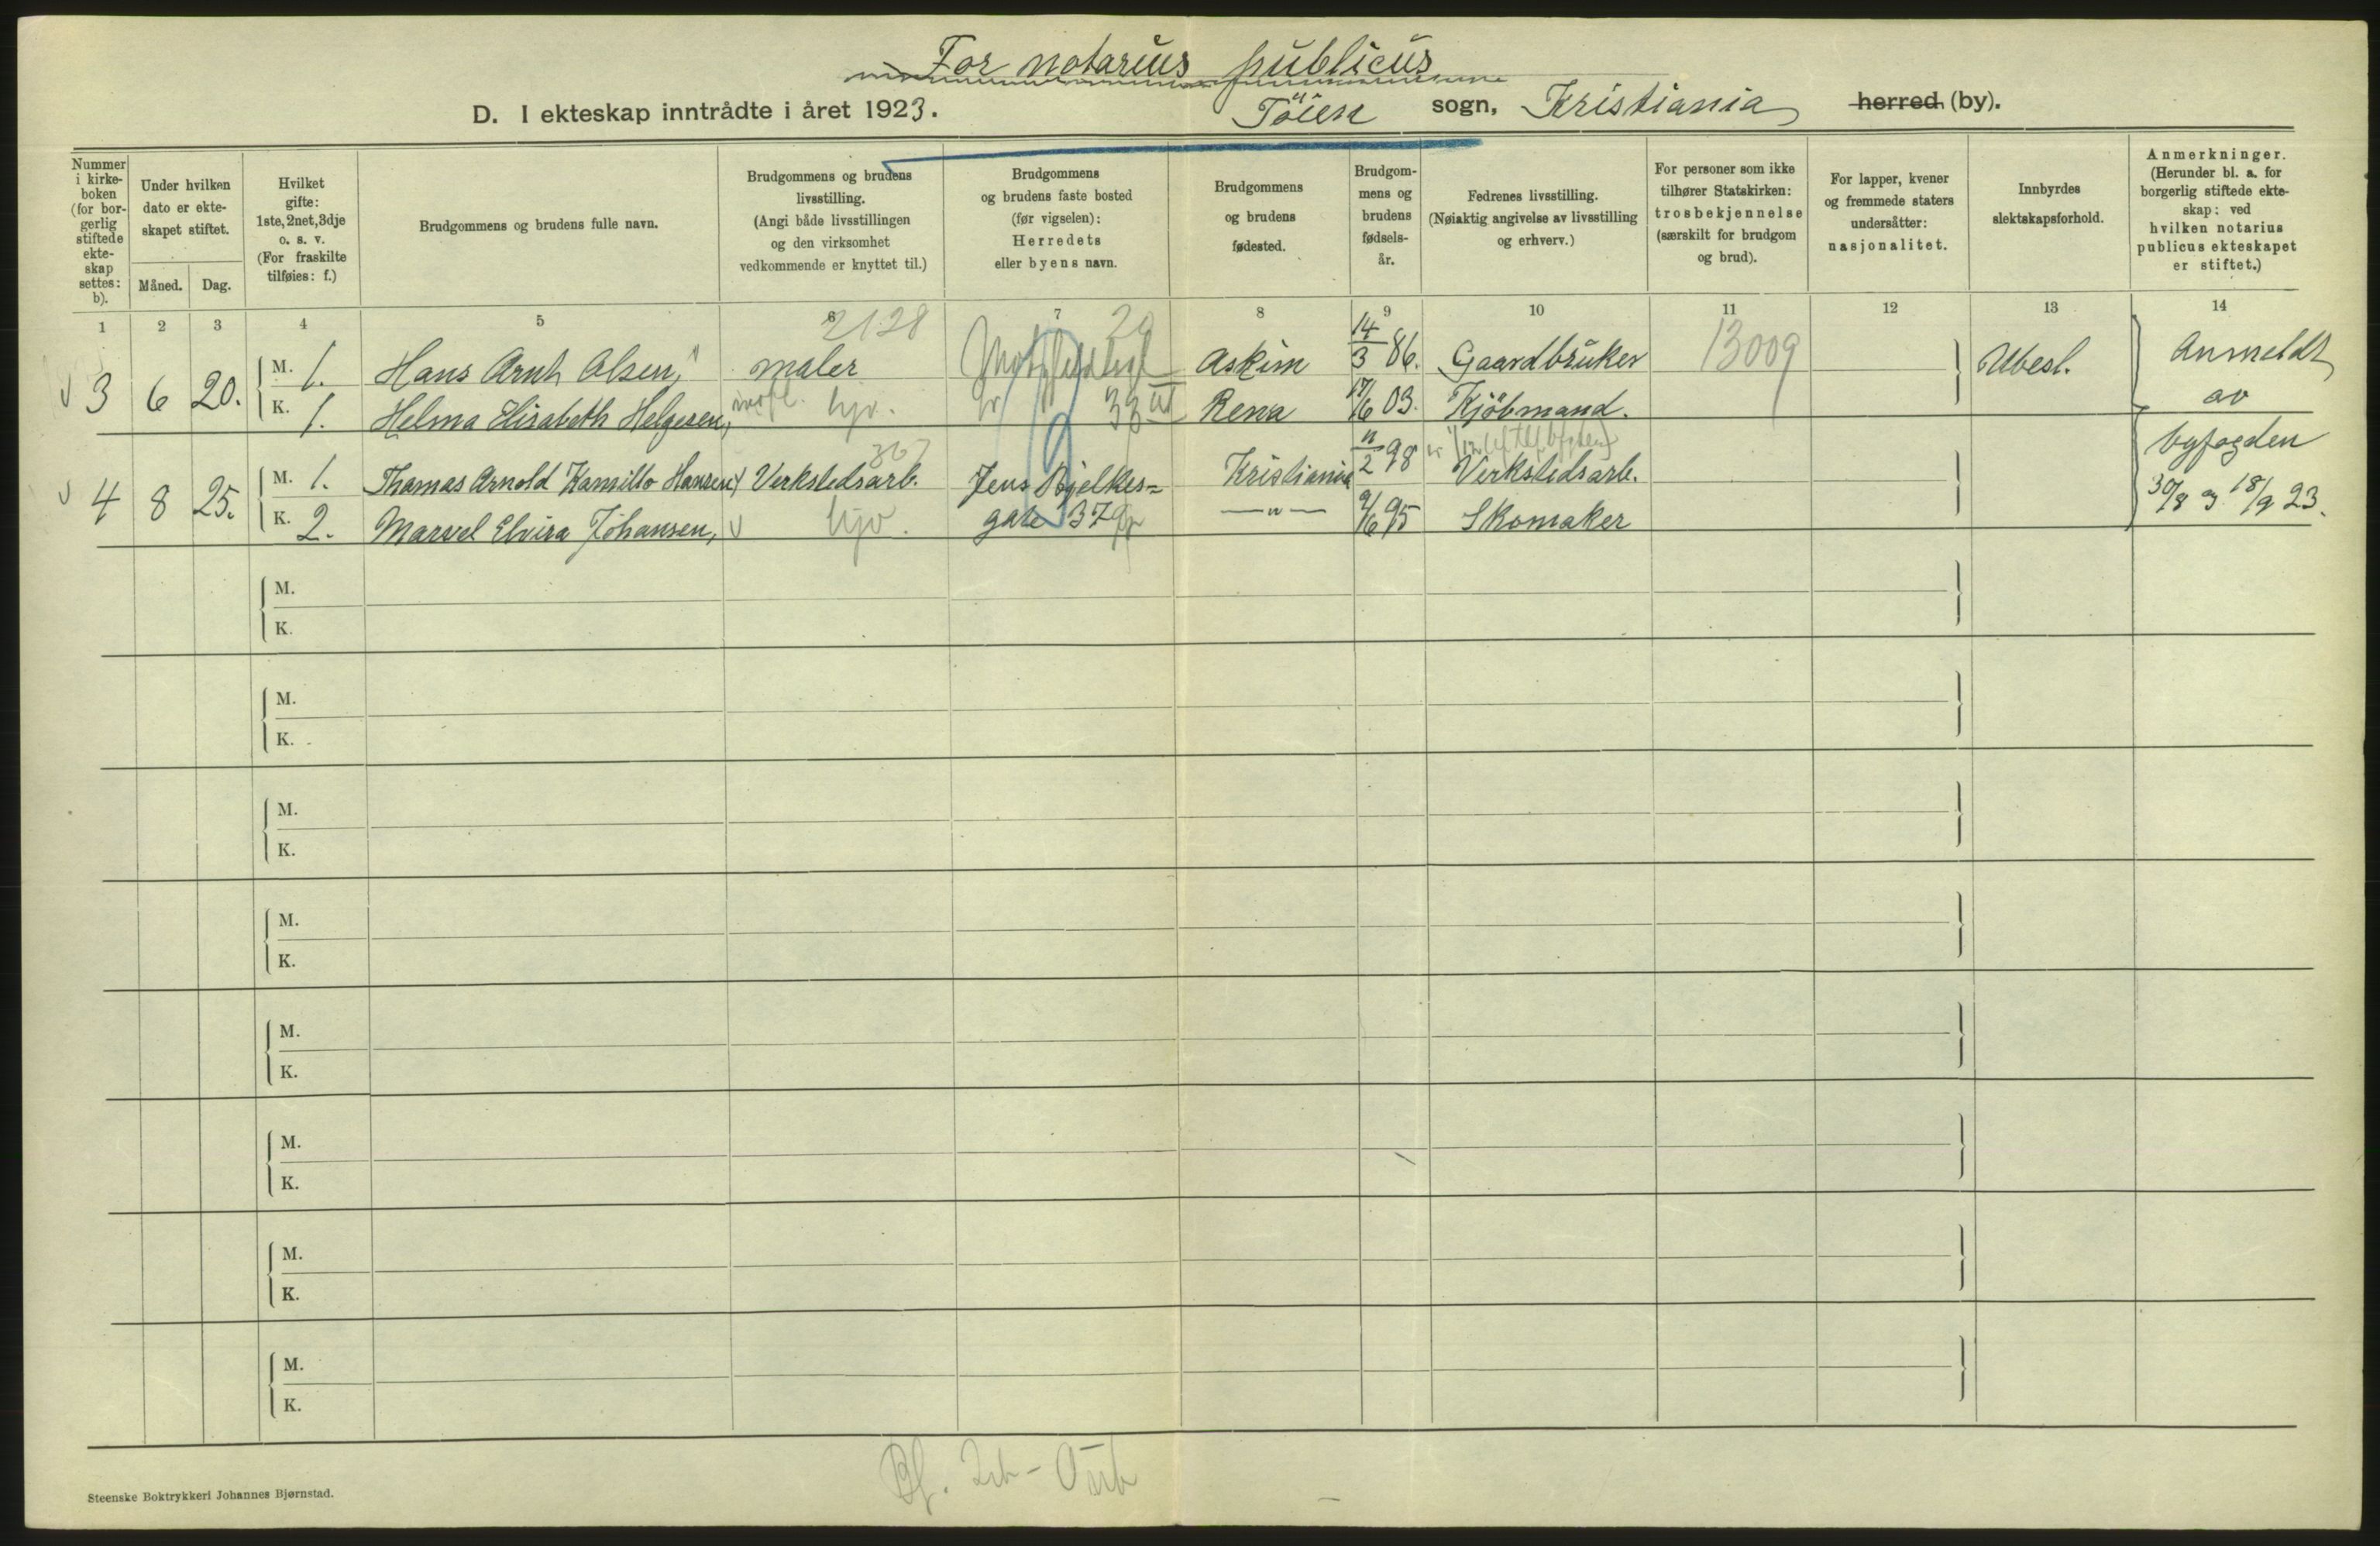 For notarius publicus
D. I ekteskap inntrådte i året 1923. Töien sogn, Kristiania herred (by).
Nummer i kirkeboken (for borgerlig stiftede ekteskap settes: b).
Under hvilken dato er ekteskapet stiftet.
Måned. Dag.
Hvilket gifte: 1ste, 2net, 3dje o. s. v. (For fraskilte tilføies: f.)
Brudgommens og brudens fulle navn.
Brudgommens og brudens livsstilling. (Angi både livsstillingen og den virksomhet vedkommende er knyttet til.)
Brudgommens og brudens faste bosted (før vigselen): Herredets eller byens navn.
Brudgommens og brudens fødested.
Brudgommens og brudens fødselsår.
Fedrenes livsstilling. (Nøiaktig angivelse av livsstilling og erhverv.)
For personer som ikke tilhører Statskirken: trosbekjennelse (særskilt for brudgom og brud).
For lapper, kvener og fremmede staters undersåtter: nasjonalitet.
Innbyrdes slektskapsforhold.
Anmerkninger. (Herunder bl. a. for borgerlig stiftede ekteskap: ved hvilken notarius publicus ekteskapet er stiftet.)
1 2 3 4 5 6 7 8 9 10 11 12 13 14
2128 29
3 6 20. M. 1. Hans Arnt Olsen, maler Askim 14/3 86. Gaardbruker 13009 Ubesl. Anmeldt
K. 1. Helma Elisabeth Helgesen, hjv. 33 III Rena 17/6 03. Kjöbmand. av
367 byfogden
4 8 25. M. 1. Thomas Arnold Kamillo Hansen, Verkstedsarb. Jens Bjelkes= Kristiania 11/2 98 Verkstedsarb. 30/8 og 18/9 23.
K. 2. Marvel Elvira Johansen, hjv. gate 37 —"— 9/6 95 Skomaker
M.
K.
M.
K.
M.
K.
M.
K.
M.
K.
M.
K.
M.
K.
M.
K.
Steenske Boktrykkeri Johannes Bjørnstad.